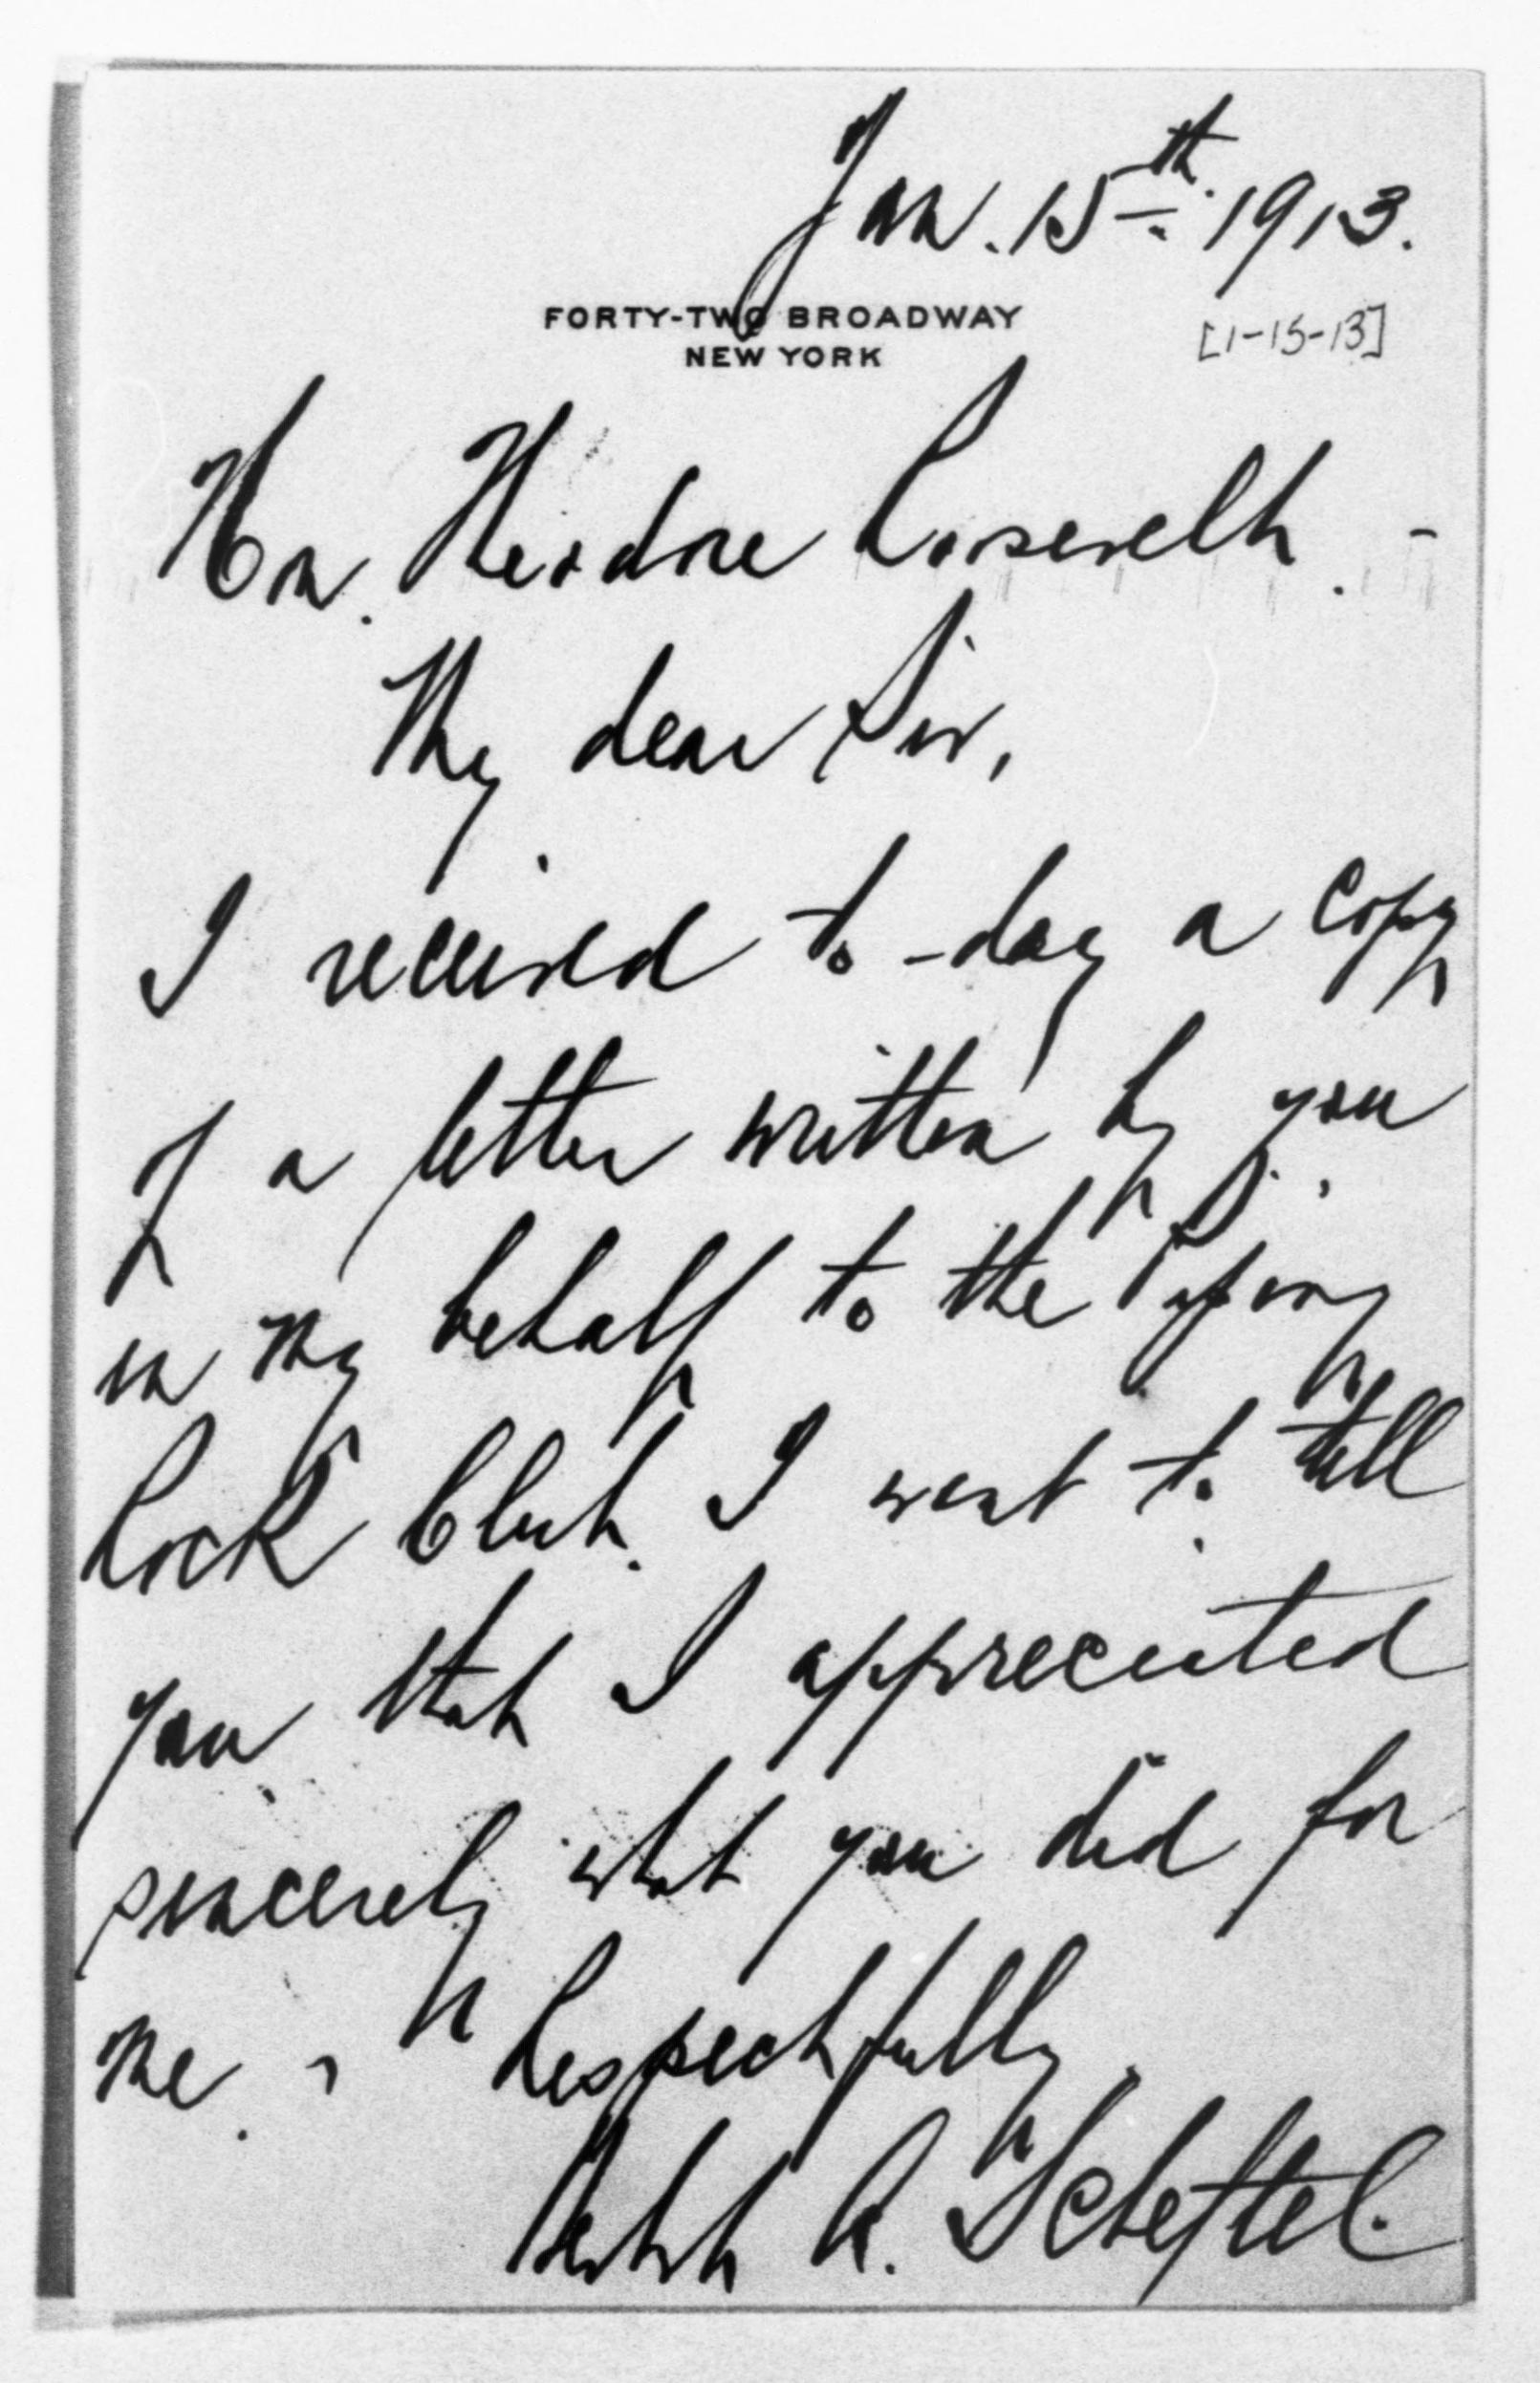 Jan. 15th. 1913.
FORTY-TWO BROADWAY
NEW YORK
[1-15-13]
Hon. Theodore Roosevelt. -
My dear Sir,
I received to-day a copy
of a letter written by you,
in my behalf to the Piping
Rock Club. I want to tell
you that I appreciated
sincerely what you did for
me. Respectfully,
Herbert A. Scheftel.